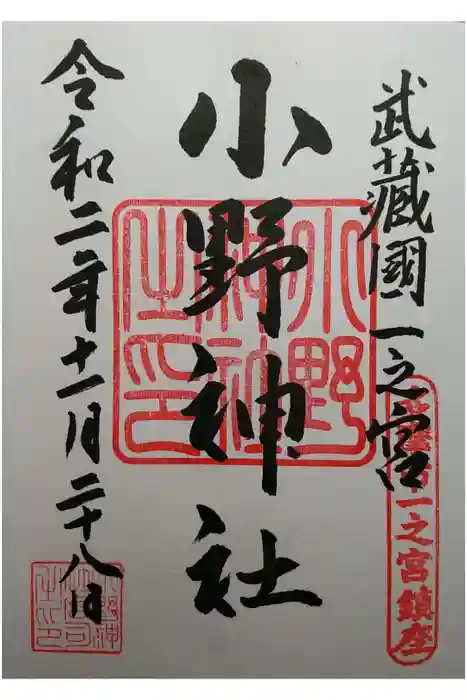 武藏國一之宮
小野神社
令和二年十一月二十八日
小野神社之印
一之宮鎮座